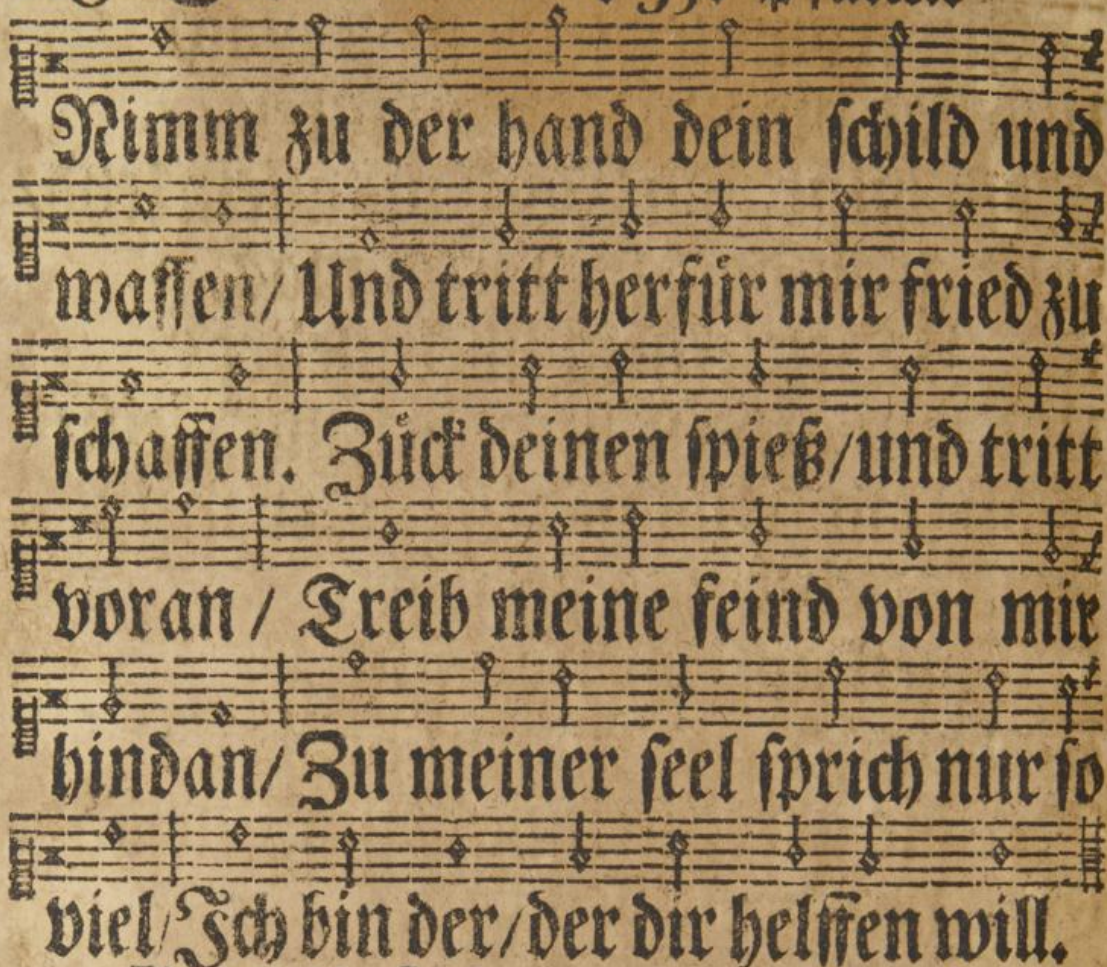 Nimm zu der hand dein ſchild und
waffen/ Und tritt herfür mir fried zu
ſchaffen. Zück deinen ſpieß/und tritt
voran / Treib meine feind von mir
hindan/ Zu meiner ſeel ſprich nur ſo
viel/ Ich bin der/der dir helffen will.